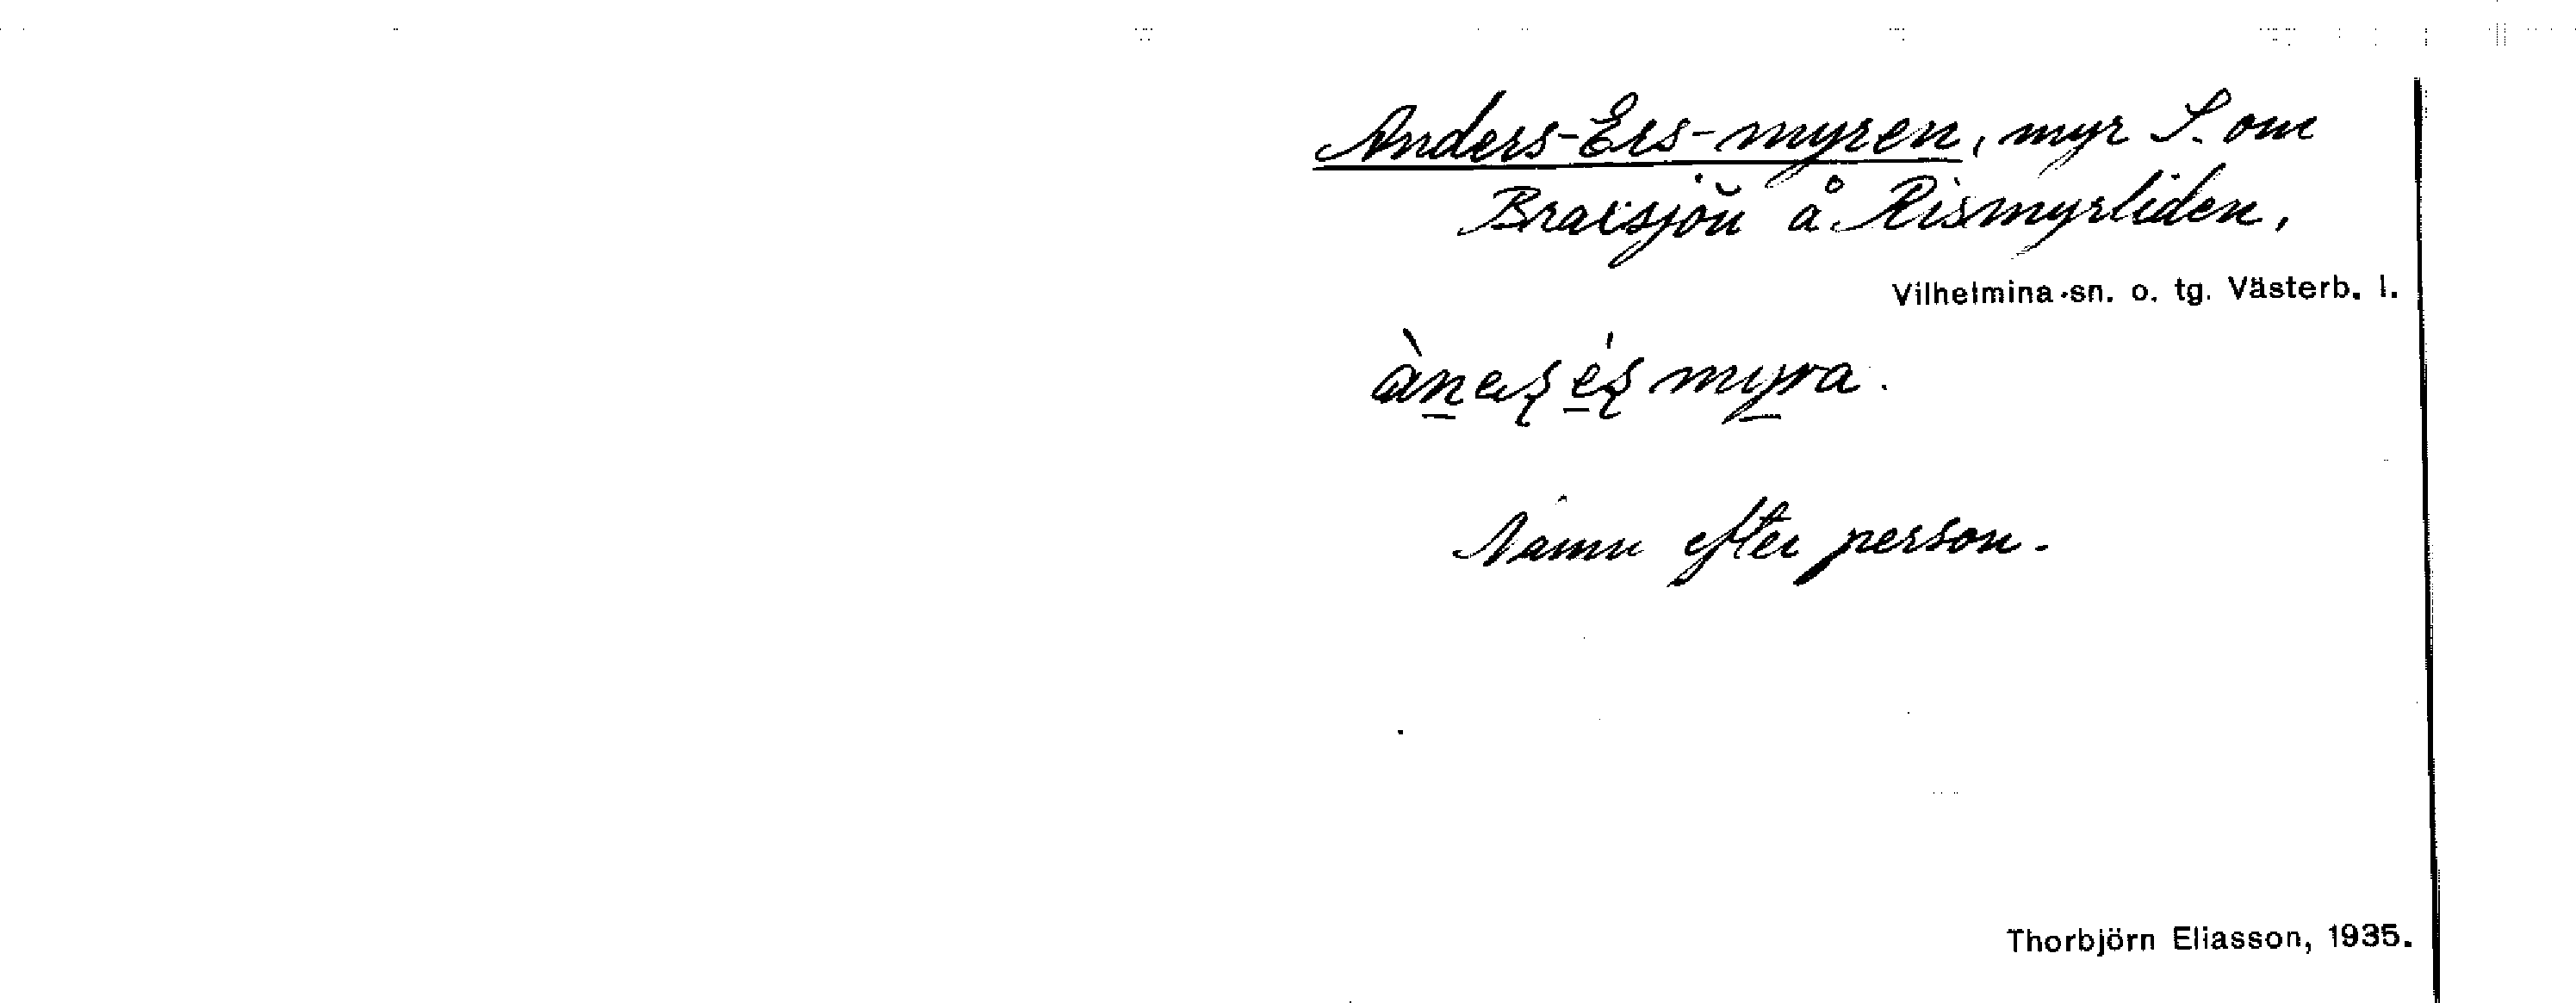 Anders-Ers-myren, myr S. om
Braxsjön å Rismyrliden.
Vilhelmina sn. o. tg. Västerb. l.
myra.
Namn efter person.
Thorbjörn Eliasson, 1935.